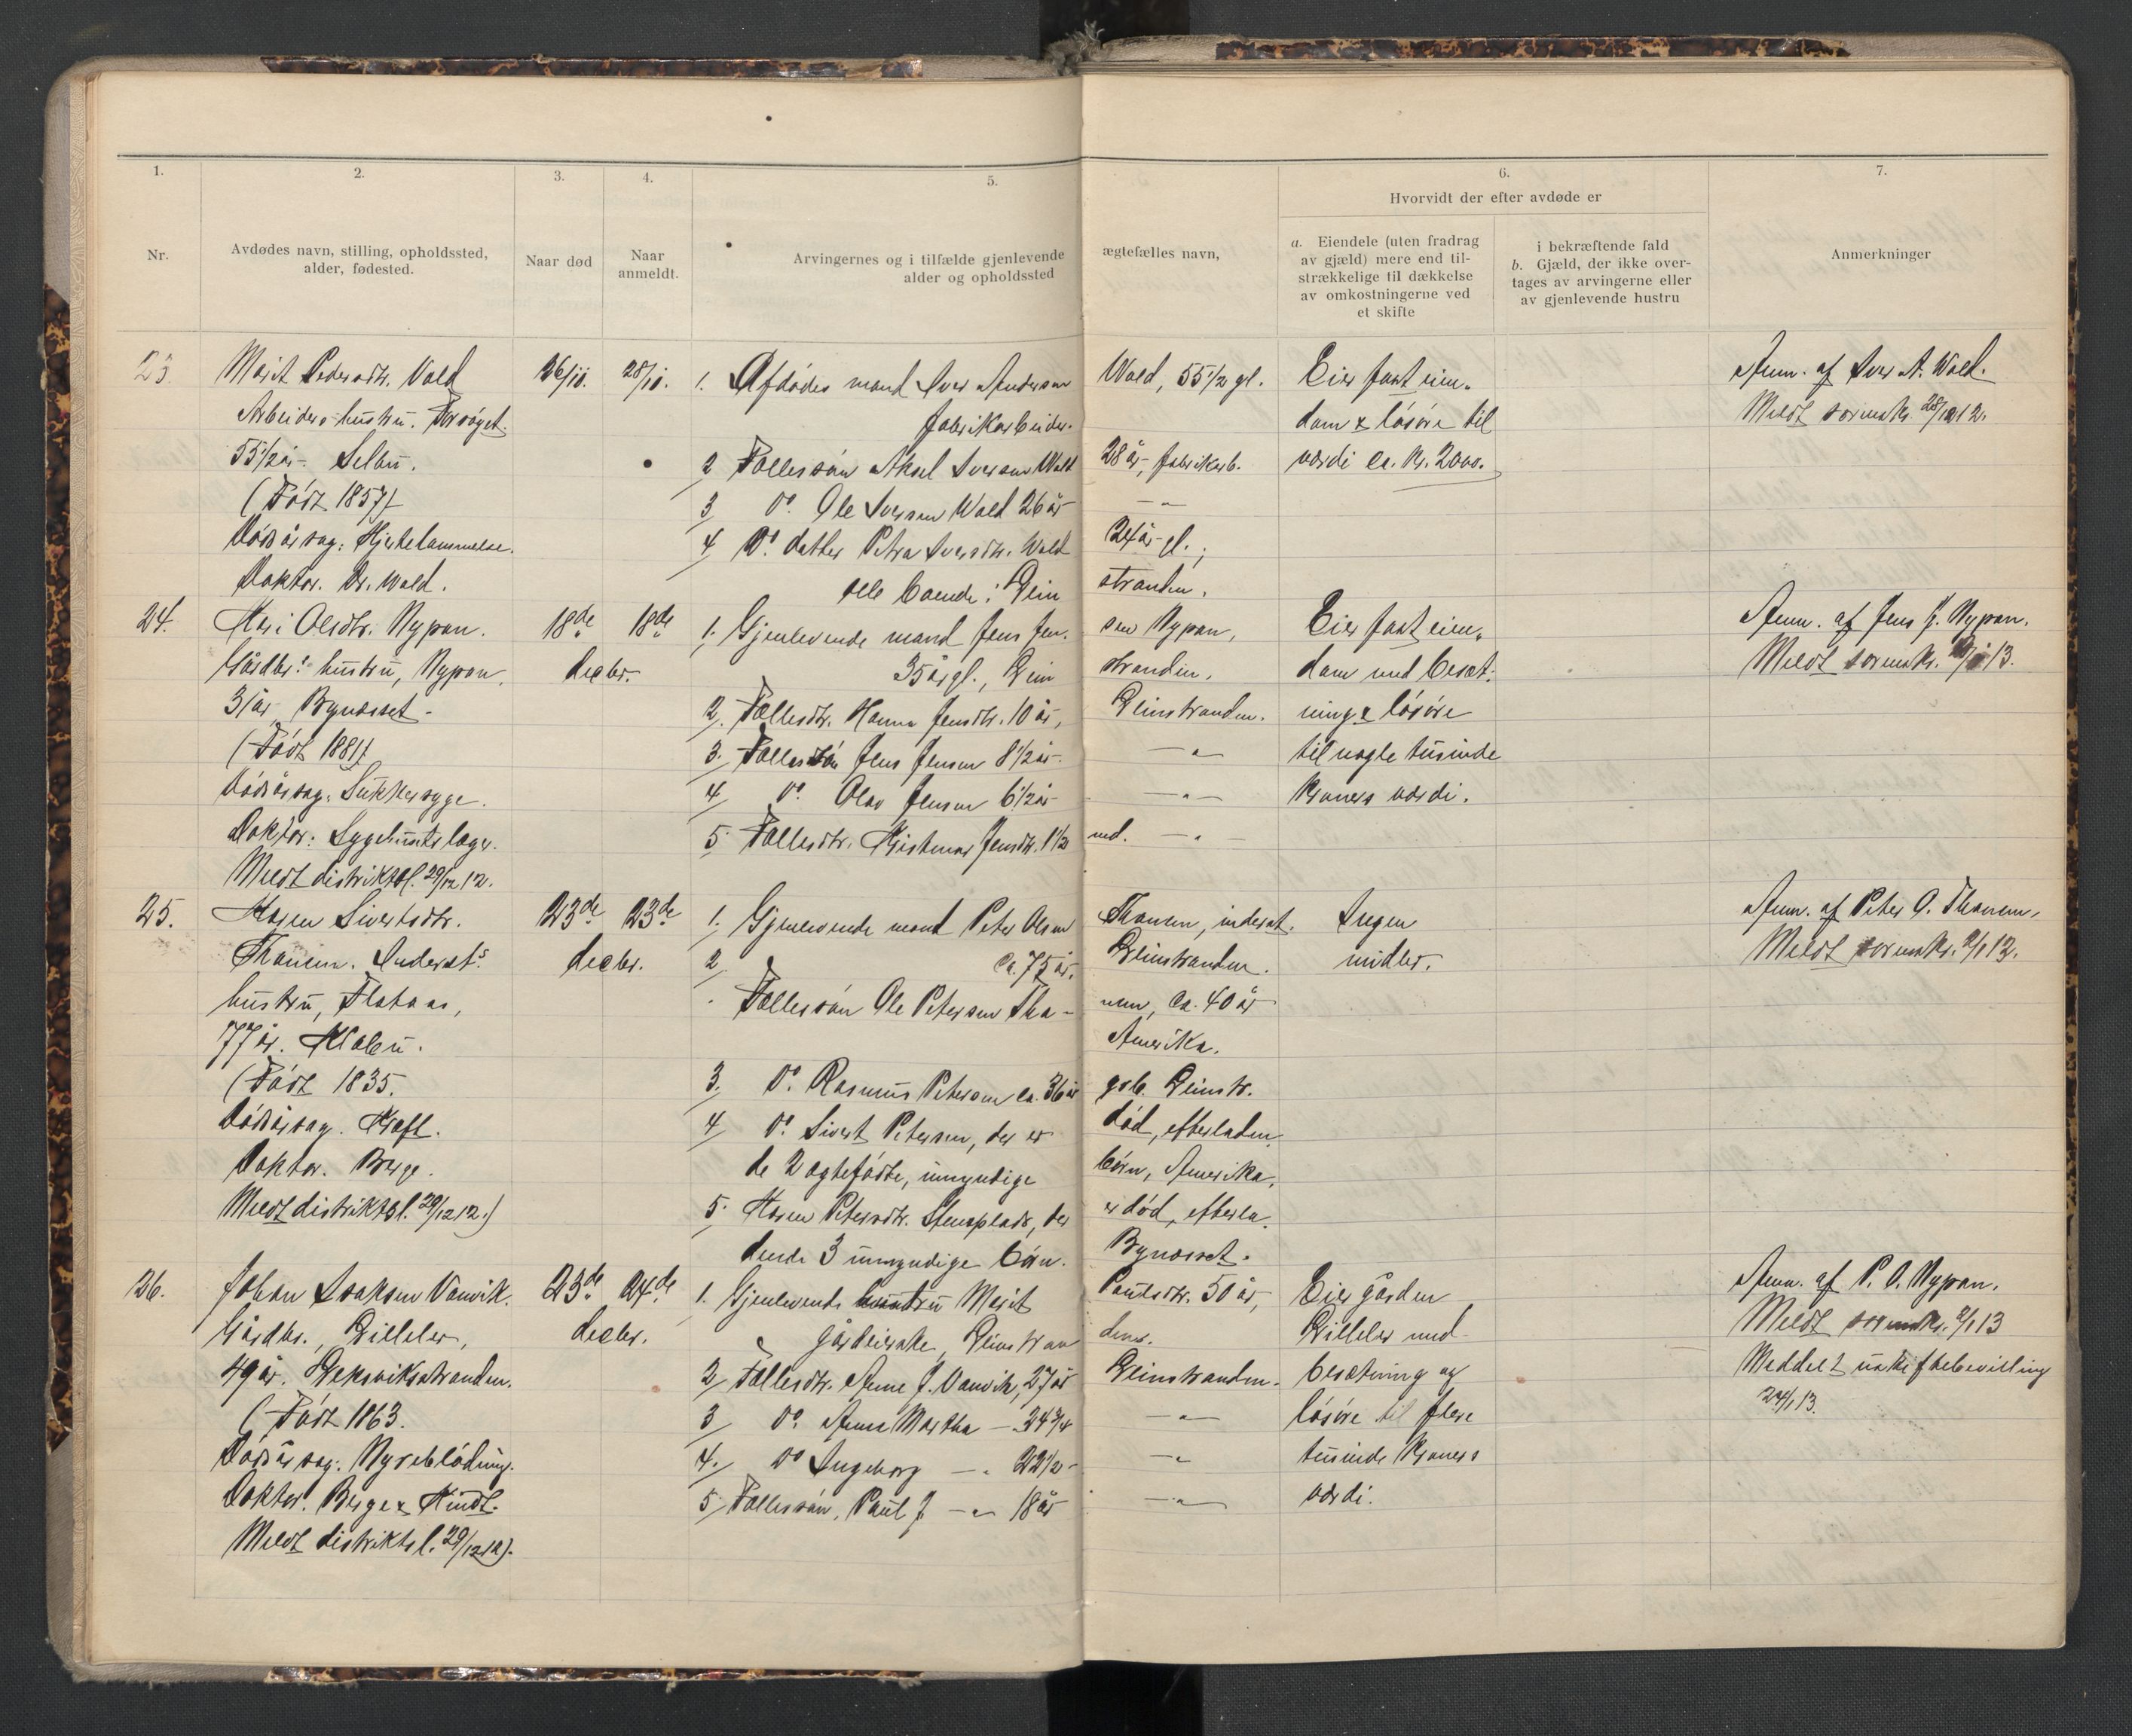 1.
2.
3.
4.
5.
6.
7.
Nr.
Avdødes navn, stilling, opholdssted,
alder, fødested.
Naar død
Naar
anmeldt.
Arvingernes og i tilfælde gjenlevende ægtefælles navn,
alder og opholdssted
Hvorvidt der efter avdøde er
a. Eiendele (uten fradrag
av gjæld) mere end til-
strækkelige til dækkelse
av omkostningerne ved
et skifte
i bekræftende fald
b. Gjæld, der ikke over-
tages av arvingerne eller
av gjenlevende hustru
Anmerkninger
23.
Marit Pedersdtr. Vald
Arbeiders hustru.
55½ år. Selbu.
(Født 1857)
Dødsårsag: Hjertelammelse.
Doktor. Dr. Wald.
26/10.
28/10.
1. Afdødes mand Iver Andersen Wald, 55½ gl.
fabrikarbeider.
2 Fællessøn Aksel Iversen Wald 28 år, fabrikarb.
3 Do. Ole Iversen Wald 26 år —"—
4 Do. datter Petra Iversdtr. Wald 24 år gl.,
alle boende i Leinstranden.
Eier fast eien-
dom & løsøre til
værdi ca. kr. 2000.
Anm. af Iver A. Wald.
Meldt sorenskr. 28/10 12.
24.
Mari Olsdtr. Nypan.
Gårdbrs. hustru, Nypan,
31 år, Bynæsset.
(Født 1881)
Dødsårsag: Sukkersyge.
Doktor: Sygehusets læger.
Meldt distriktsl. 29/12 12.
18de
decbr.
18de
1. Gjenlevende mand Jens Jensen Nypan,
35 år gl., Leinstranden.
2. Fællesdtr. Hanna Jensdtr. 10 år, Leinstranden.
3. Fællessøn Jens Jensen 8½ år —"—
4 Do. Olav Jensen 6½ år —"—
5. Fællesdtr. Kristmar Jensdtr. 1½ md. —"—
Eier fast eien-
dom med besæt-
ning & løsøre
til nogle tusinde
kroners værdi.
Anm. af Jens J. Nypan.
Meldt sorenskr. 13.
25.
Maren Sivertsdtr.
Thanem. Inderst's
hustru, Flataas,
77 år. Klæbu.
(Født 1835.
Dødsårsag. Kræft.
Doktor. Berge.
Meldt distriktsl. 29/12 12.)
23de
decbr.
23de
1. Gjenlevende mand Peter Olsen Thanem, inderst.
ca. 75 år. Leinstranden.
2 Fællessøn Ole Petersen Tha-nem, ca. 40 år
Amerika.
3. Do. Rasmus Petersen ca. 36 år grb. Leinstr.
4 Do. Sivert Petersen, der er død, efterladen-
de 2 ægtefødte, umyndige børn, Amerika.
5. Maren Petersdtr. Stensplads, der er død, efterla-
dende 3 umyndige børn. Bynæsset.
Ingen
midler.
Anm. af Peter O. Thanem.
Meldt sorenskr. 2/1 13.
26.
Johan Isaksen Vanvik.
Gårdbr., Lilleler,
49 år. Leksvikstranden.
(Født 1863.
Dødsårsag. Nyreblødning.
Doktor. Berge & Hindt.
Meldt distriktsl. 29/12 12).
23de
decbr.
24de
1. Gjenlevende hustru Marit Paulsdtr. 50 år,
gårdeierske, Leinstranden.
2 Fællesdtr. Anne J. Vanvik, 27 år Leinstranden.
3 Do. Anna Martha — 24¾ —"—
4. Do Ingeborg —"— 22½ —"—
5 Fællessøn, Paul J. —"— 18 år —"—
Eier gården
Lilleler med
besætning og
løsøre til flere
tusinde kroners
værdi.
Anm. af P. O. Nypan.
Meldt sorenskr. 2/1 13
Meddelt uskiftebevilling
24/1 13.